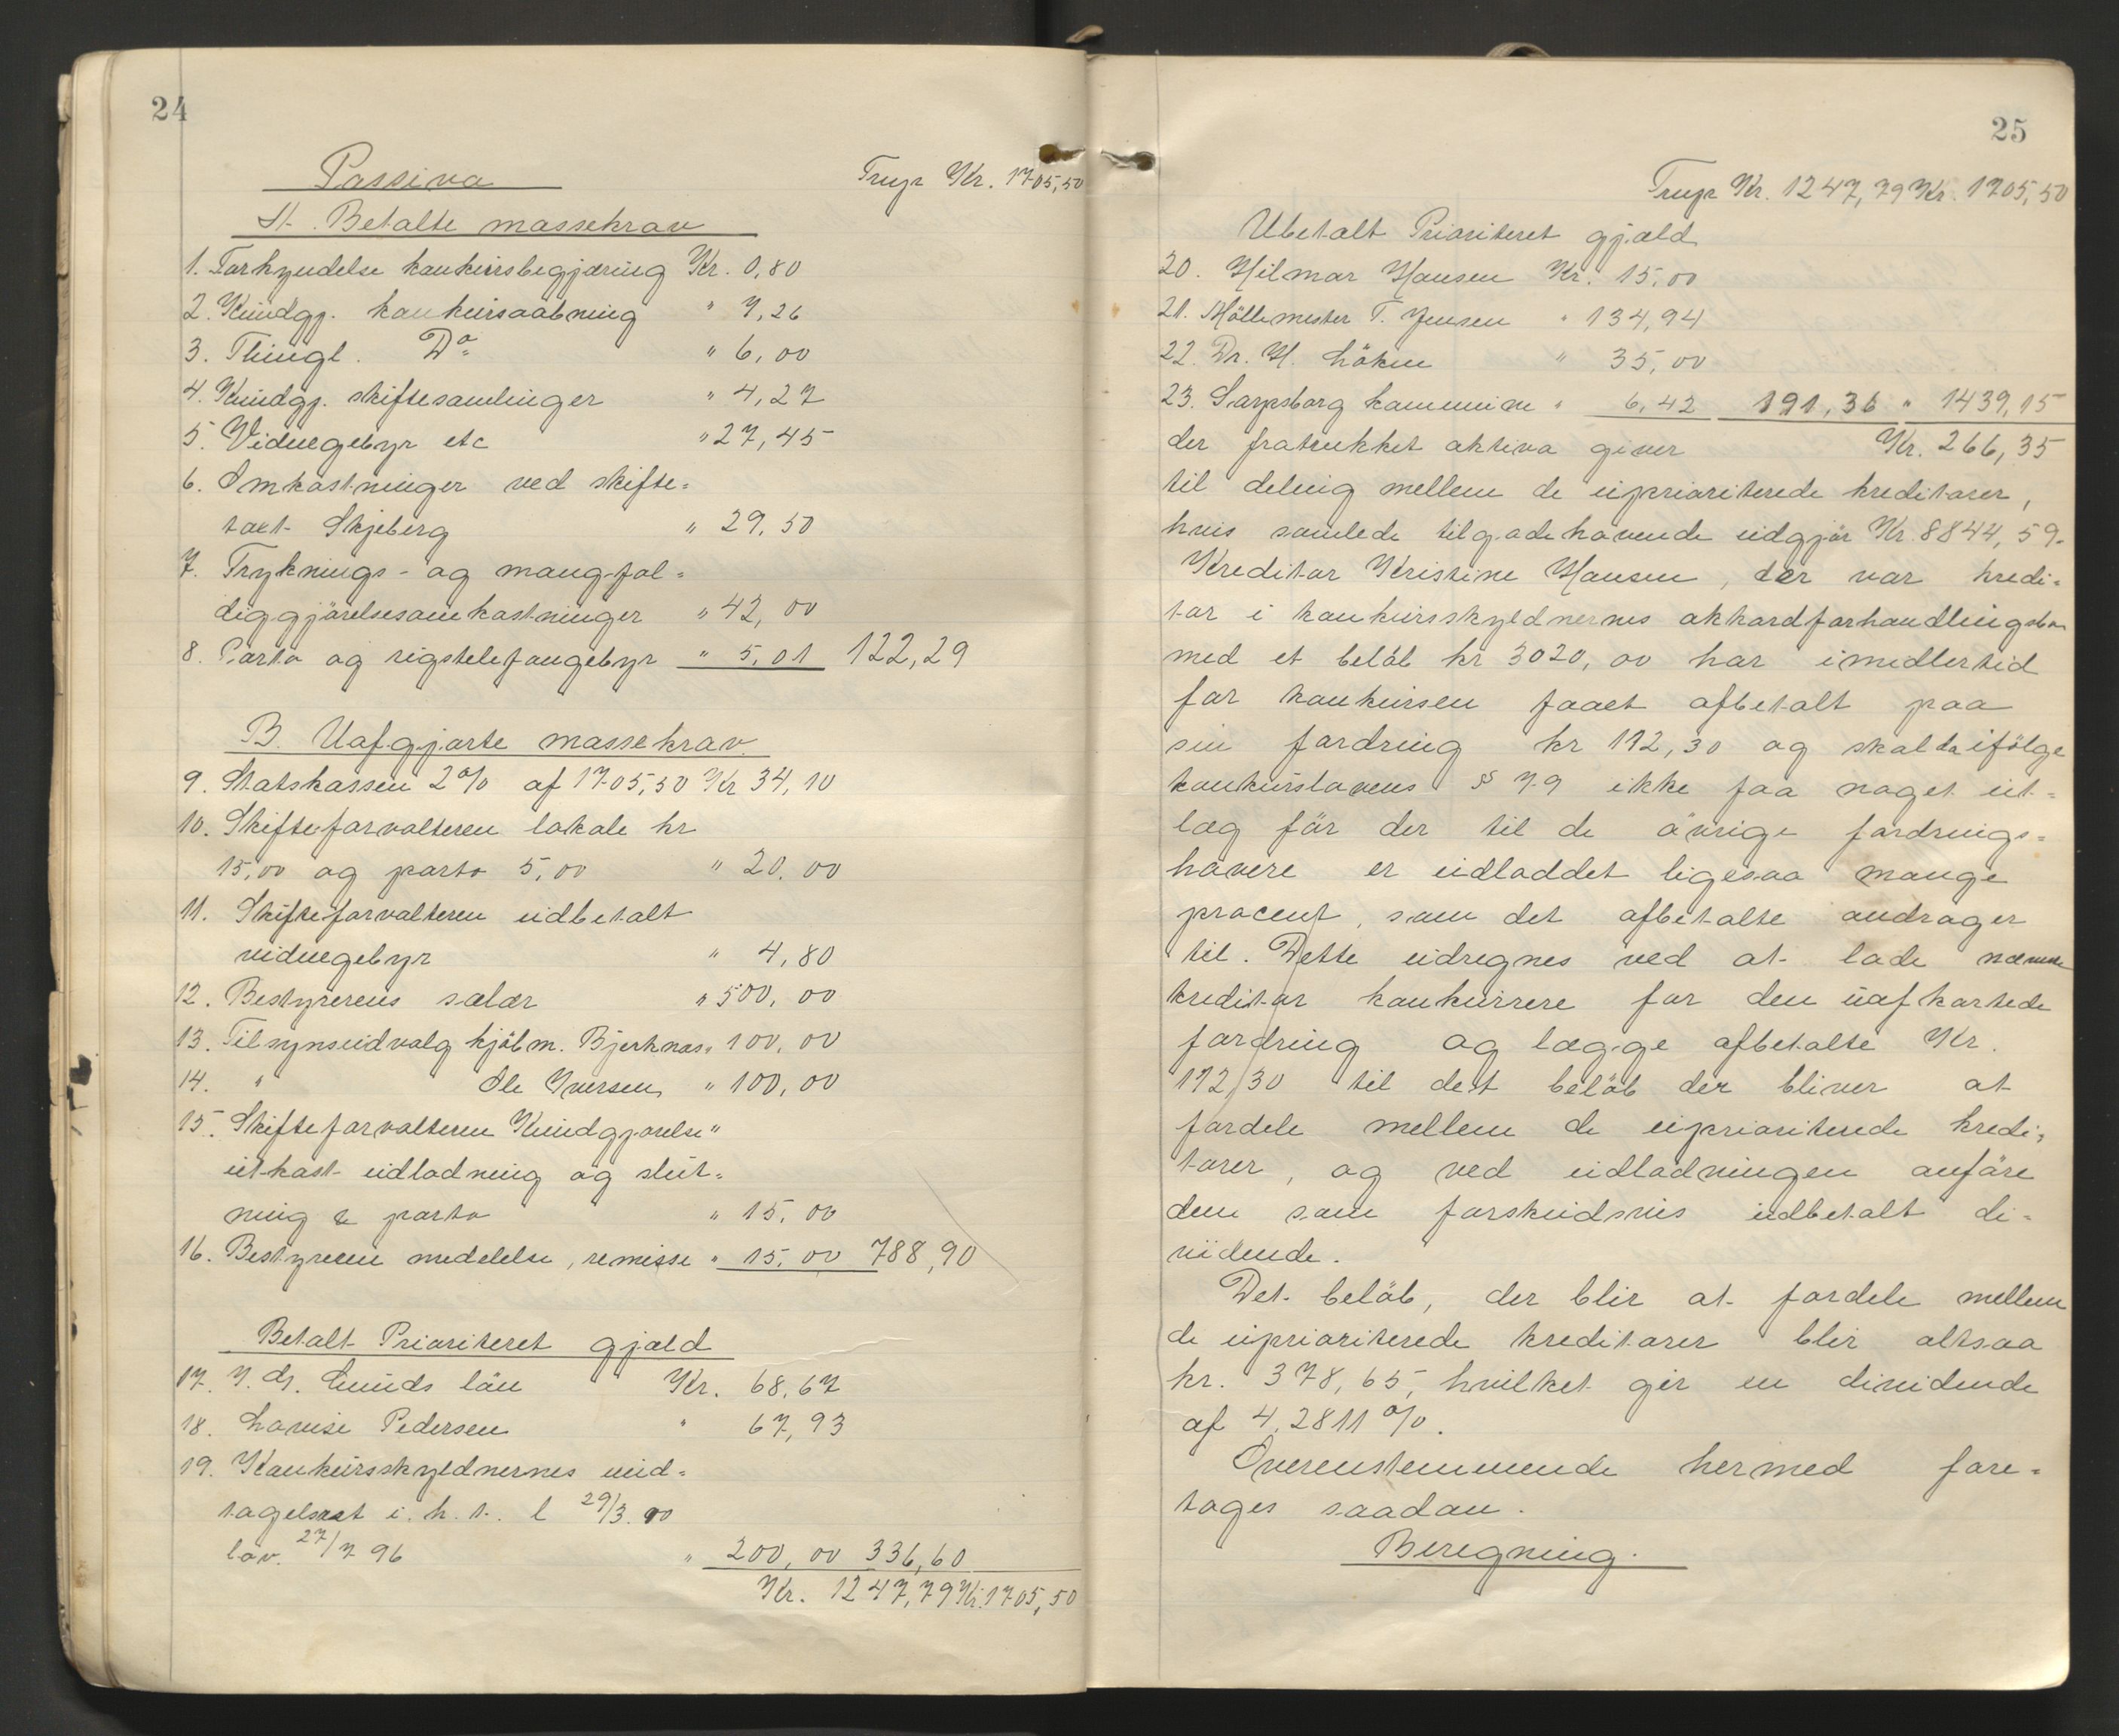 24
Passiva Trnsp Kr. 1705,50
A. Betalte massekrav
1. Forkyndelse konkursbegjæring Kr. 0,80
2. Kundgj. konkursaabning " 7,26
3. Thingl. Do " 6,00
4. Kundgj. skiftesamlinger " 4,27
5. Vidnegebyr etc " 27,45
6. Omkostninger ved skifte=
taxt Skjeberg " 29,50
7. Tryknings- og mangfol=
diggjørelsesomkostninger " 42,00
8. Porto og rigstelefongebyr " 5,01 122,29
B. Uafgjorte massekrav
9. Statskassen 2% af 1705,50 Kr 34,10
10. Skifteforvalteren lokale kr
15,00 og porto 5,00 " 20,00
11. Skifteforvalteren udbetalt
vidnegebyr " 4,80
12. Bestyrerens salær " 500,00
13. Tilsynsudvalg kjøbm. Bjerknæs " 100,00
14. " Ole Iversen " 100,00
15. Skifteforvalteren Kundgjørelse "
utkast udlodning og slut=
ning & porto " 15,00
16. Bestyreren meddelelse, remisse " 15,00 788,90
Betalt Prioriteret gjæld
17. Lunds lön Kr. 68,67
18. Lovise Pedersen " 67,93
19. Konkursskyldnernes und=
tagelsret i. h. t. l 29/3 90
lov. 27/7 96 " 200,00 336,60
Kr. 1247,79 Kr. 1705,50
25
Trnsp Kr. 1247,79 Kr. 1705,50
Ubetalt Prioriteret gjæld
20. Hilmar Hansen Kr. 15,00
21. Möllemester T. Jensen " 134,94
22. Dr. H. Løken " 35,00
23. Sarpsborg kommune " 6,42 191,36 " 1439,15
der fratrukket aktiva giver Kr. 266,35
til deling mellem de uprioriterede kreditorer,
hvis samlede tilgodehavende udgjør Kr. 8844,59.
Kreditor Kristine Hansen, der var kredi=
tor i konkursskyldnernes akkordforhandlingsbo
med et beløb kr 3020,00 har imidlertid
før konkursen faaet afbetalt paa
sin fordring kr 112,30 og skal da ifölge
konkurslovens § 79 ikke faa noget ut=
læg før der til de övrige fordrings=
havere er udloddet ligesaa mange
procent, som det afbetalte andrager
til. Dette udregnes ved at lade nævnte
kreditor konkurrere for den uafkortede
fordring og lægge afbetalte Kr.
112,30 til det beløb der bliver at
fordele mellem de uprioriterede kredi=
torer, og ved udlodningen anføre
dem som forskudsvis udbetalt di=
vidende.
Det beløb, der blir at fordele mellem
de uprioriterede kreditorer blir altsaa
kr. 378,65, hvilket gir en dividende
af 4,2811 %.
Overenstemmende hermed fore=
tages saadan.
Beregning.